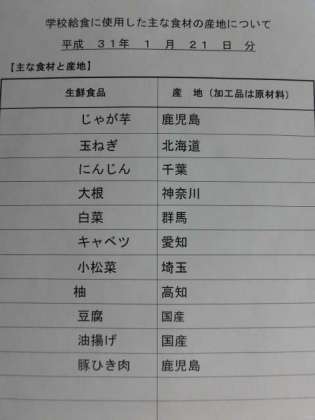 学校給食に使用した主な食材の産地について
平成 31年 1 月 21 日 分
【主な食材と産地】
生鮮食品 産 地(加工品は原材料)
じゃが芋 鹿児島
玉ねぎ 北海道
にんじん 千葉
大根 神奈川
白菜 群馬
キャベツ 愛知
小松菜 埼玉
柚 高知
豆腐 国産
油揚げ 国産
豚ひき肉 鹿児島